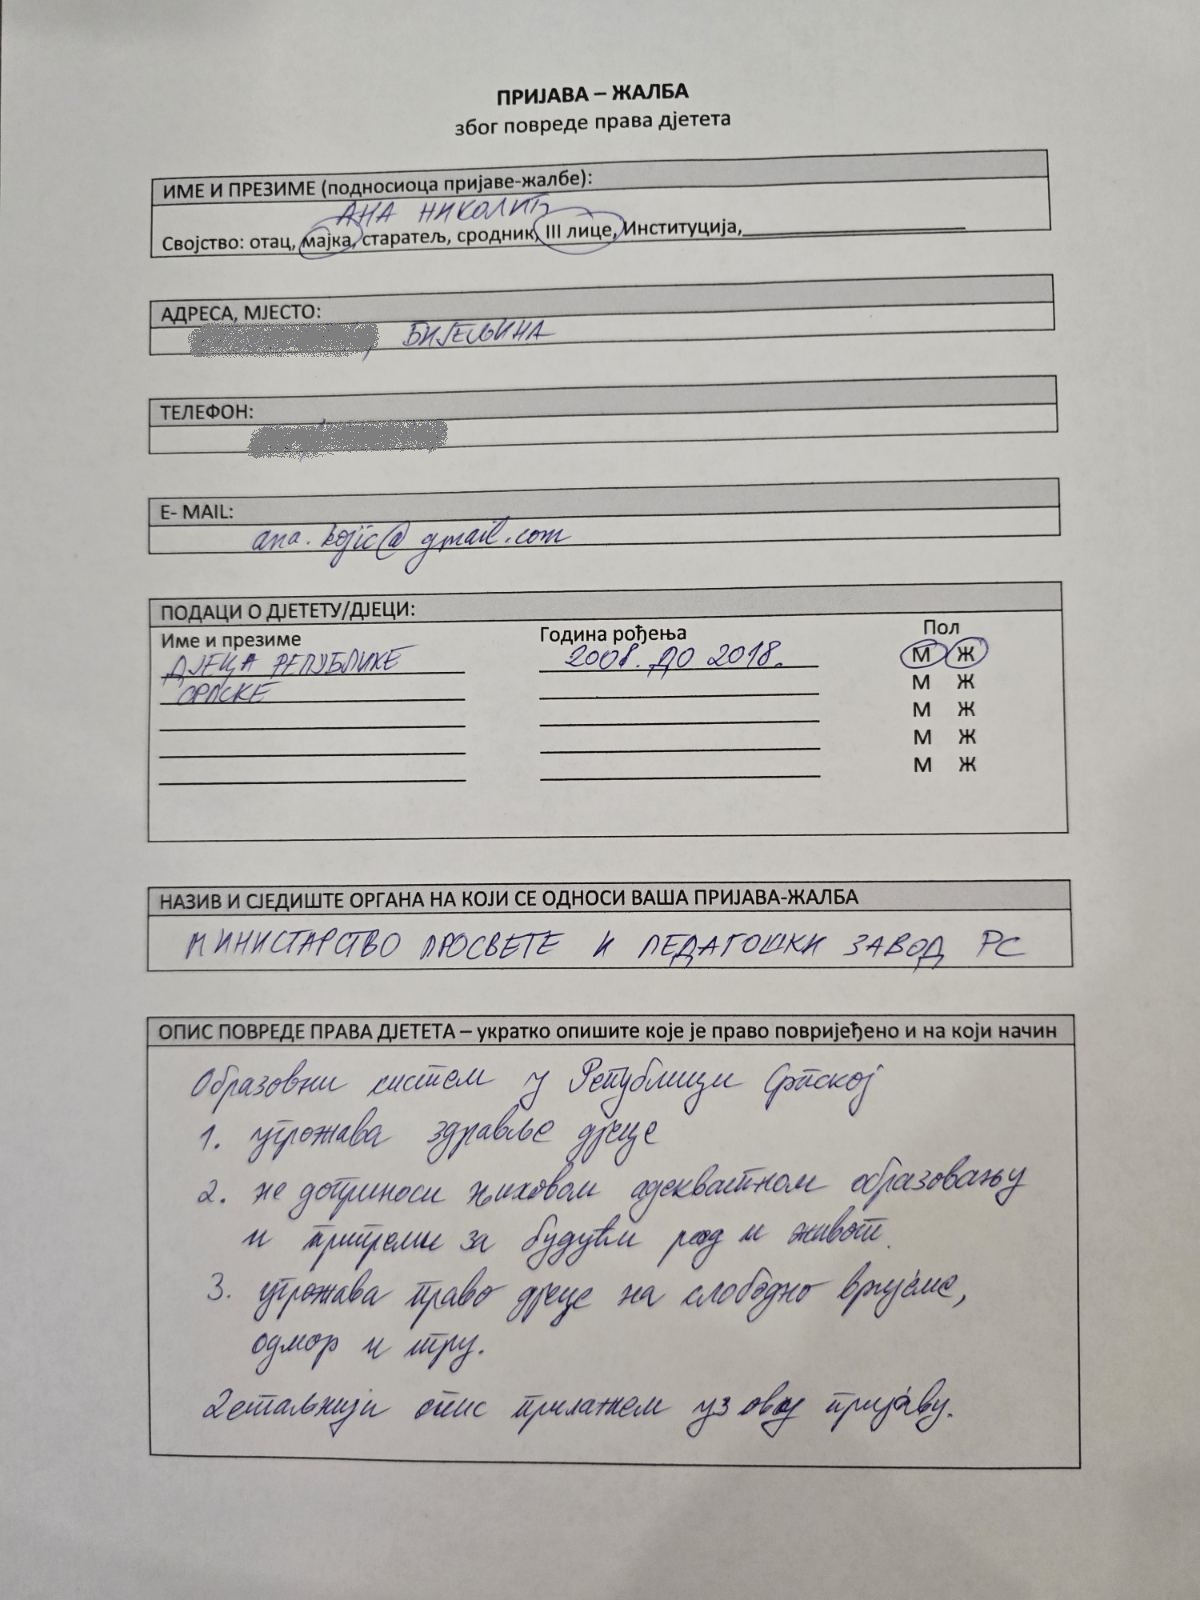 ПРИЈАВА – ЖАЛБА
због повреде права дјетета
ИМЕ И ПРЕЗИМЕ (подносиоца пријаве-жалбе):
АНА НИКОЛИЋ
Својство: отац, мајка, старатељ, сродник, III лице, Институција,
АДРЕСА, МЈЕСТО:
, БИЈЕЉИНА
ТЕЛЕФОН:
E- MAIL:
ana.kojic@gmail.com
ПОДАЦИ О ДЈЕТЕТУ/ДЈЕЦИ:
Име и презиме Година рођења Пол
ДЈЕЦА РЕПУБЛИКЕ 2008. ДО 2018. М Ж
СРПСКЕ М Ж
М Ж
М Ж
М Ж
НАЗИВ И СЈЕДИШТЕ ОРГАНА НА КОЈИ СЕ ОДНОСИ ВАША ПРИЈАВА-ЖАЛБА
МИНИСТАРСТВО ПРОСВЕТЕ И ПЕДАГОШКИ ЗАВОД РС
ОПИС ПОВРЕДЕ ПРАВА ДЈЕТЕТА – укратко опишите које је право повријеђено и на који начин
Образовни систем у Републици Српској
1. угрожава здравље дјеце
2. не доприноси њиховом адекватном образовању
и припреми за будући рад и живот.
3. угрожава право дјеце на слободно вријеме,
одмор и игру.
Детаљнији опис прилажем уз ову пријаву.